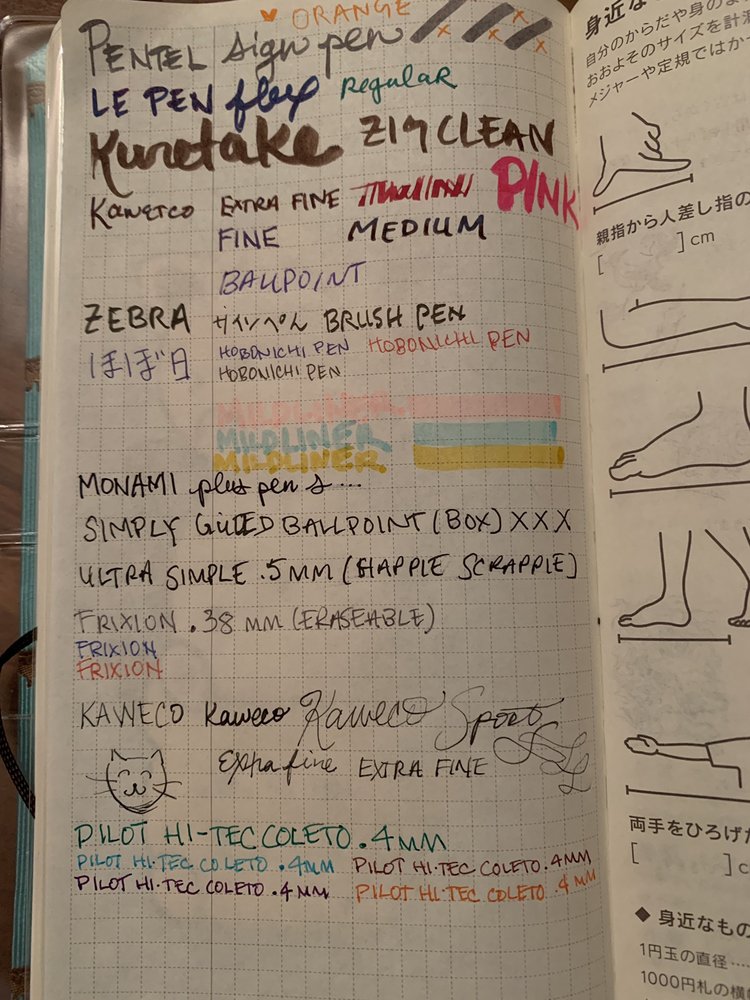 ORANGE
PENTEL sign pen
LE PEN flex Regular
Kuretake ZIG CLEAN
Kawetco EXTRA FINE PINK
FINE MEDIUM
BALLPOINT
ZEBRA サインペん BRUSH PEN
ほぼ日 HOBONICHI PEN HOBONICHI PEN
HOBONICHI PEN
MILDLINER
MILDLINER
MILDLINER
MONAMI plus pen s...
SIMPLY GILDED BALLPOINT (BOX) XXX
ULTRA SIMPLE .5MM (HAPPLE SCRAPPLE)
FRIXION .38 mm (ERASEABLE)
FRIXION
FRIXION
KAWECO Kaweco Kaweco Sport
Extra fine EXTRA FINE
PILOT HI-TEC COLETO .4MM
PILOT HI-TEC COLETO .4MM PILOT HI-TEC COLETO .4MM
PILOT HI-TEC COLETO .4MM PILOT HI-TEC COLETO .4MM
身近な
自分のからだや身のま
おおよそのサイズを計
メジャーや定規ではか
親指から人差し指の
[ ] cm
両手をひろげた
[ ] c
◆ 身近なもの
1円玉の直径 ....
1000円札の横